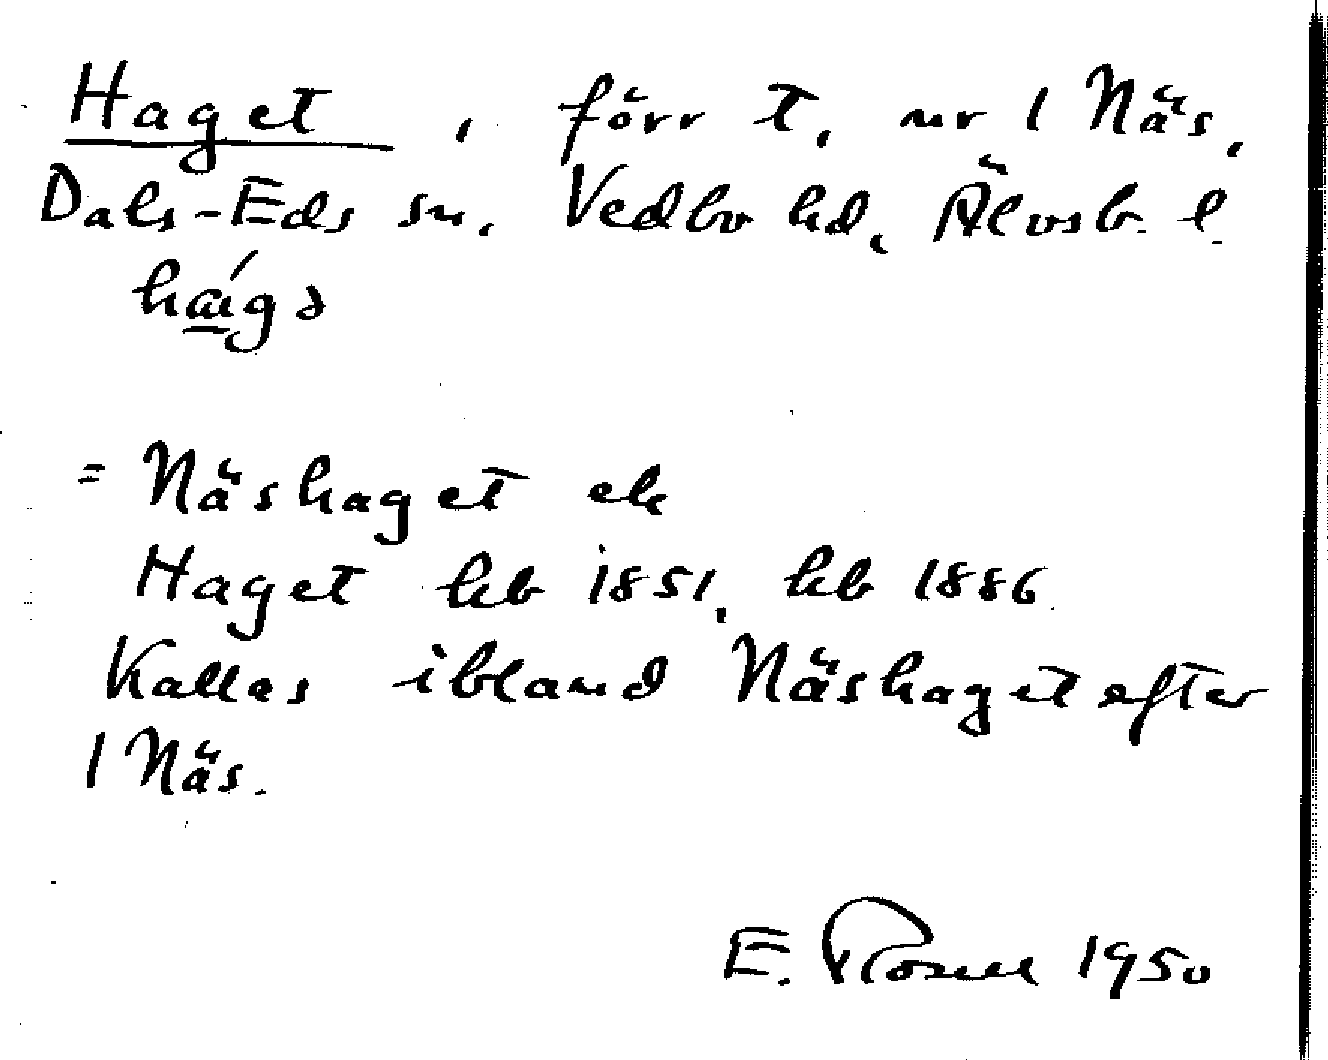 Haget, förr t. nr 1 Näs,
Dals-Eds sn, Vedbo hd, Älvsb. l.
= Näshaget ek
Haget hb 1851, hb 1886
Kallas ibland Näshaget efter
1 Näs.
E. Rosell 1950